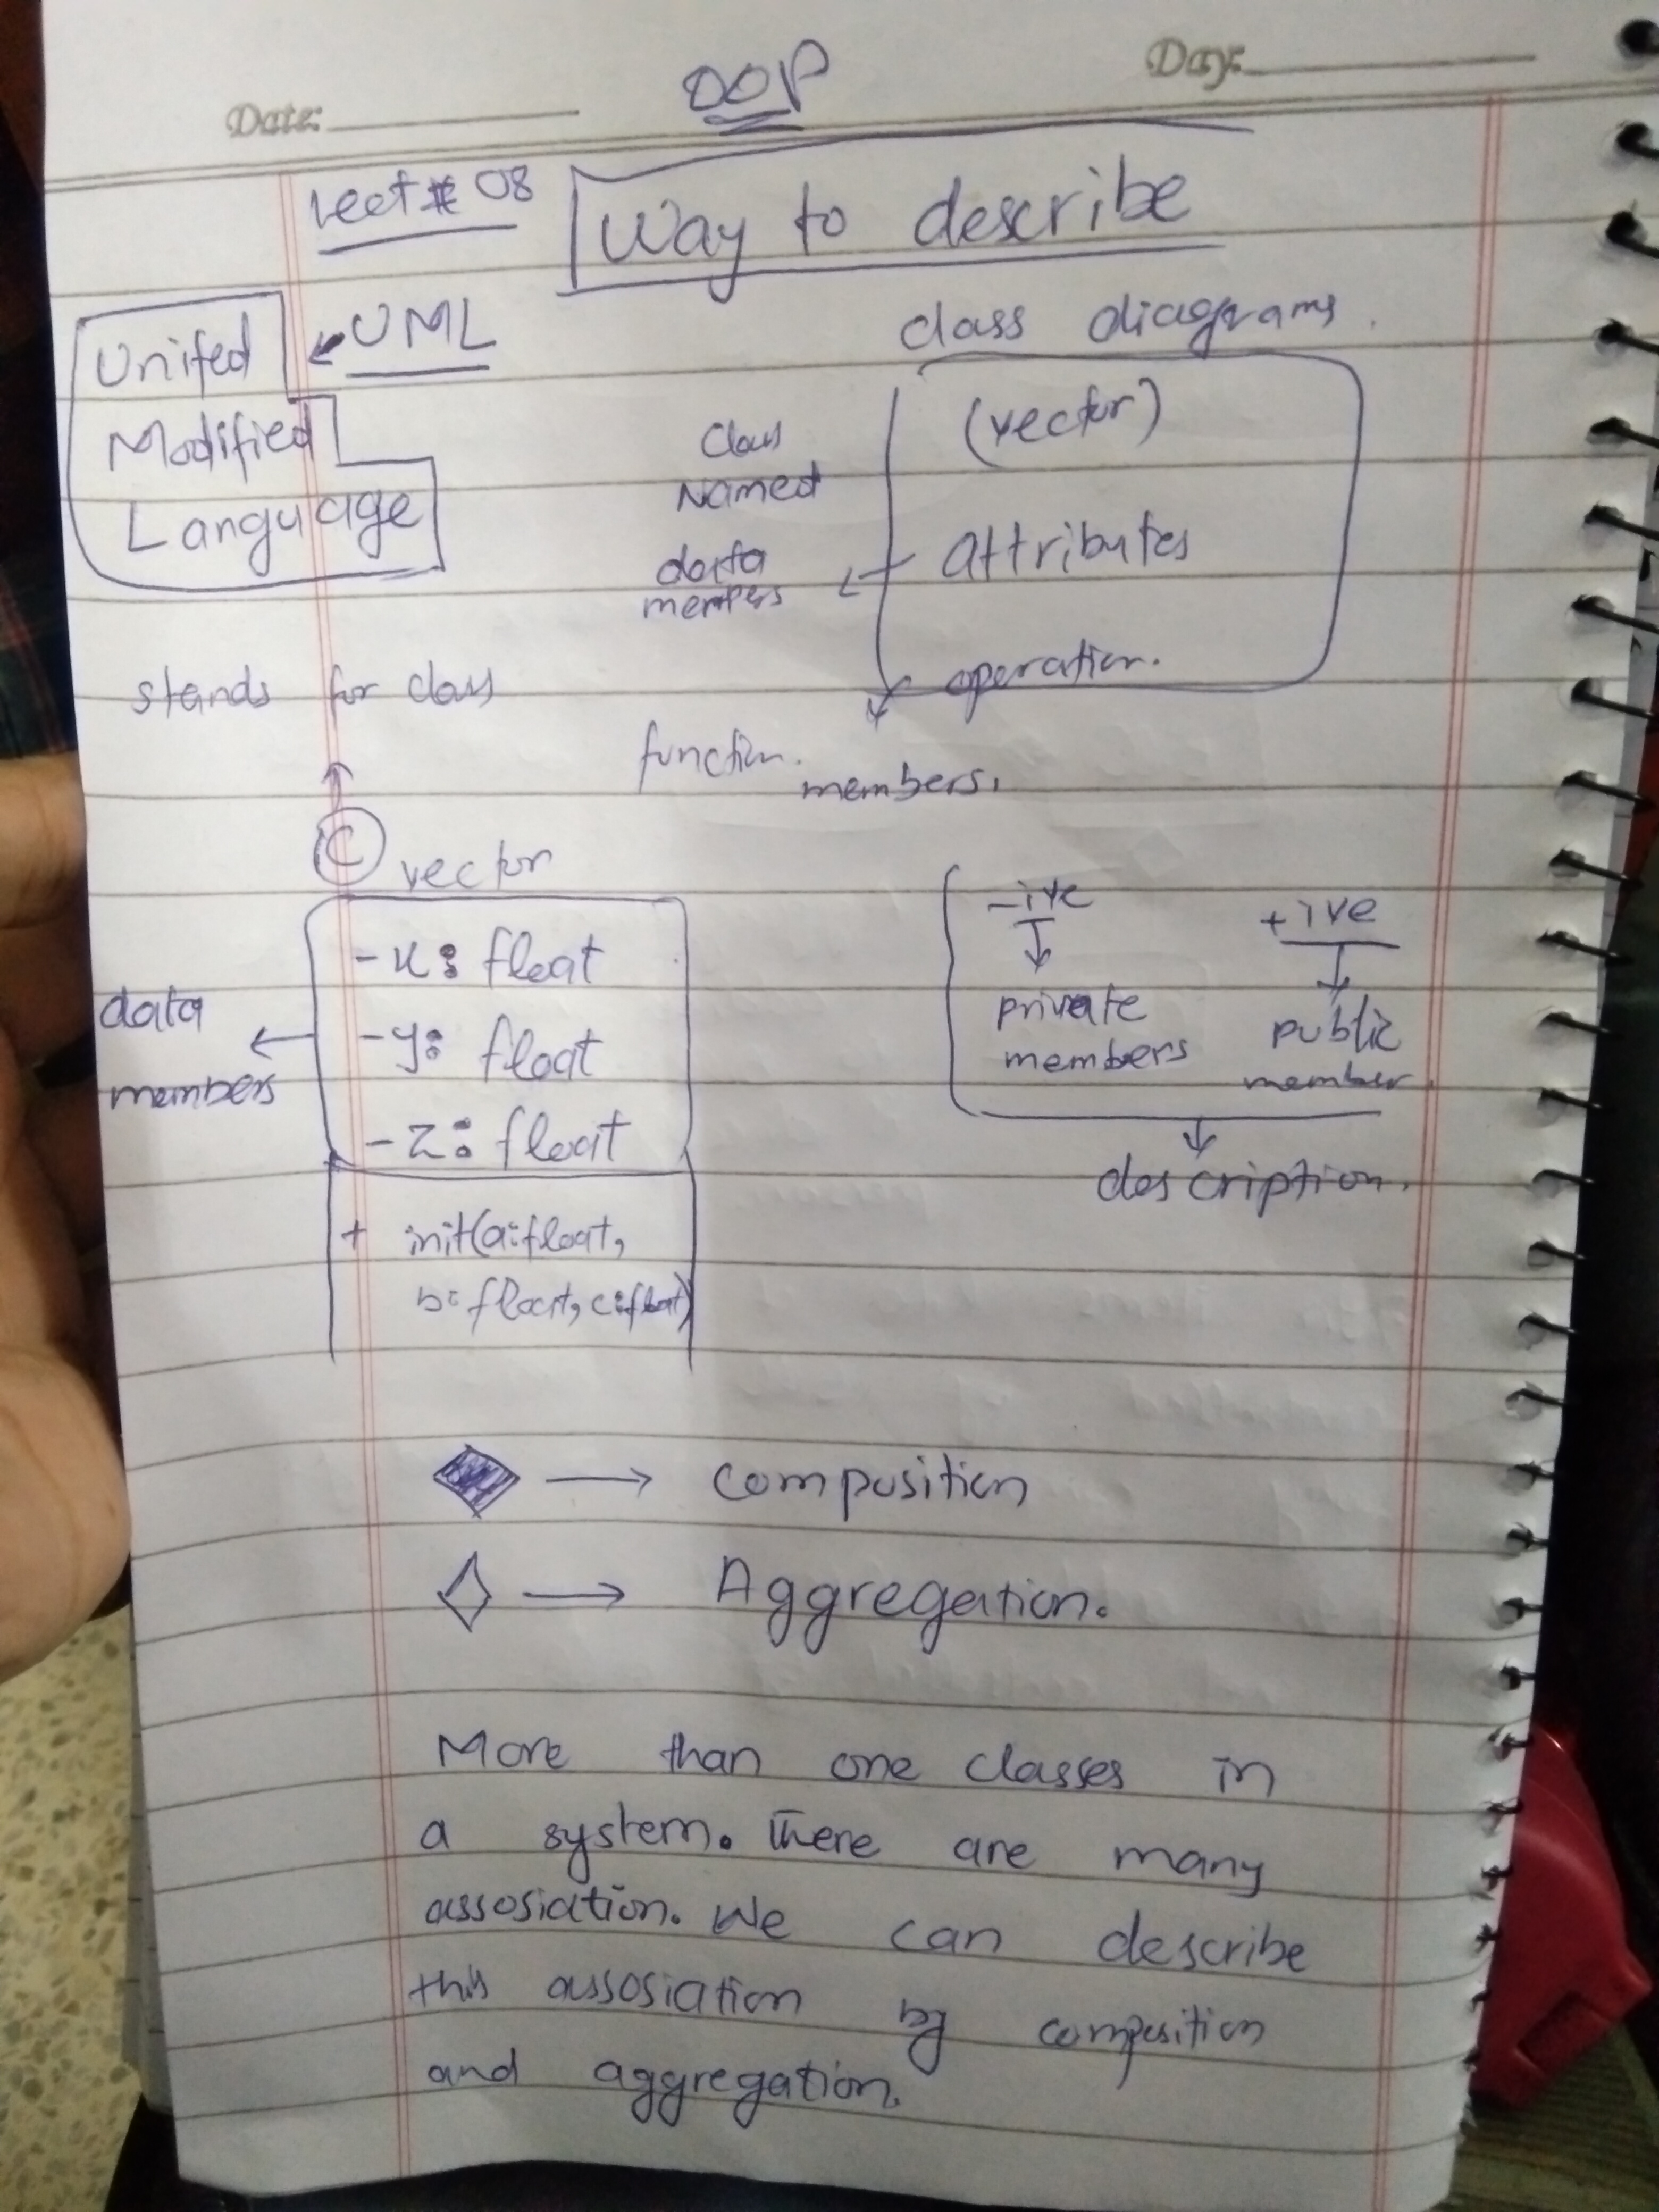 OOP
Date:
Day:
Lect # 08
Way to describe
UML
Unifed
Modified
Language
class diagrams.
(vector)
Class
Named
Attributes
data
members
operation.
function.
members.
stands for class
C vector
-x: float
-y: float
-z: float
data
members
+ init(a:float,
b:float, c:float)
-ive
+ive
private
members
public
member.
description.
→ Composition
→ Aggregation.
More than one classes in
a system. There are many
assosiation. We can describe
this assosiation by composition
and aggregation.